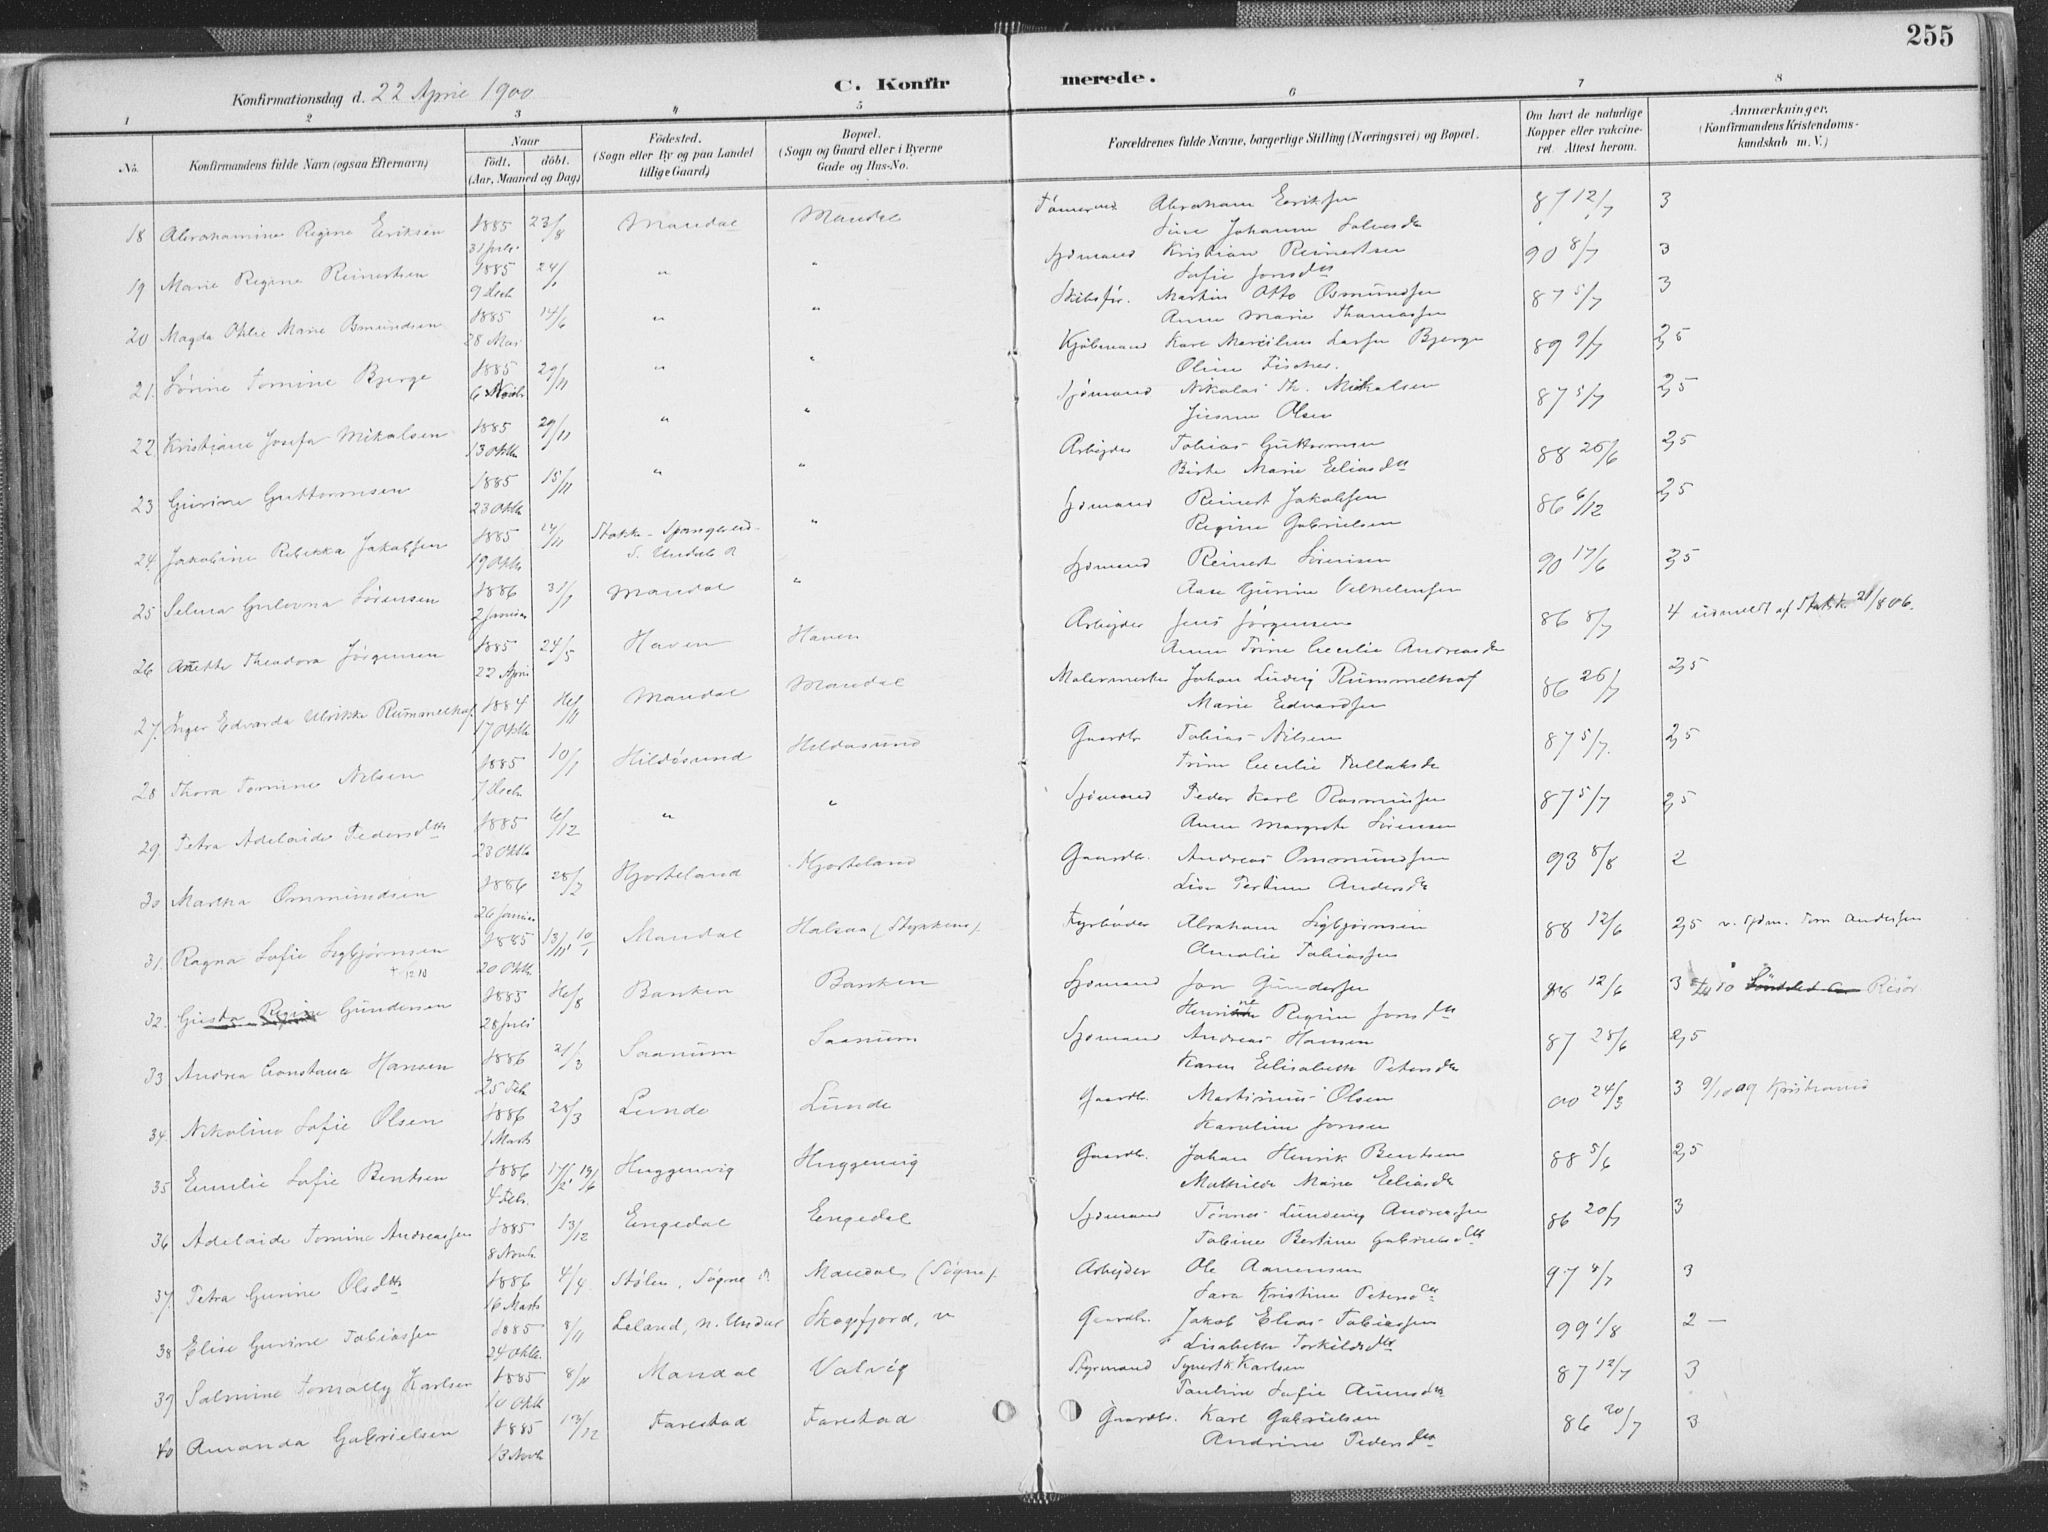 255
Konfirmationsdag d. 22 April 1900
C. Konfirmerede.
1 2 3 4 5 6 7 8
No.
Konfirmandens fulde Navn (ogsaa Efternavn)
Naar
födt. döbt.
(Aar, Maaned og Dag)
Födested.
(Sogn eller By og paa Landet
tillige Gaard)
Bopæl.
(Sogn og Gaard eller i Byerne
Gade og Hus-No.
Forældrenes fulde Navne, borgerlige Stilling (Næringsvei) og Bopæl.
Om havt de naturlige
Kopper eller vakcine-
ret. Attest herom.
Anmærkninger.
(Konfirmandens Kristendoms-
kundskab m. V.)
18 Abrahamine Regine Eriksen 1885 23/8 Mandal Mandal Tømmermd. Abraham Eriksen 87 12/7 3
31 Juli Sine Johanne Salvesdr
19 Marie Regine Reinertsen 1885 24/1 " " Sjømand Kristian Reinertsen 90 8/7 3
9 Decb Sofie Jonsdtr
20 Magda Otilie Marie Osmundsen 1885 14/6 " " Skibsfør. Martin Otto Osmundsen 87 5/7 3
28 Mai Anne Marie Thomassen
21. Sørine Tomine Bjerge 1885 29/11 " " Kjøbmand Karl Larsen Bjerge 89 9/7 2,5
6 Novb Oline Fischer.
22 Kristiane Josefa Mikalsen 1885 29/11 " " Sjømand Nikolai Th. Mikalsen 87 5/7 2,5
13 Oktb Olsen
23 Gurine Guttormsen 1885 15/11 " " Arbejder Tobias Guttormsen 88 26/6 2,5
23 Oktb Birte Marie Eliasdtr
24 Jakobine Rebekka Jakobsen 1885 14/11 Stokke - Spangereid - " Sjømand Reinert Jakobsen 86 6/12 2,5
19 Oktb S. Undal Regine Gabrielsen
25 Selma Gulovna Sørensen 1886 31/1 Mandal " Sjømand Reinert Sørensen 90 17/6 3,5
2 Januar Aase Gurine Vilhelmsen
26 Anette Theodora Jørgensen 1885 24/5 Haven Haven Arbejder Jens Jørgensen 86 8/7 4 udmeldt af Statsk 21/8 06.
22 April Anne Trine Cecilie Andreasdr
27. Inger Edvarda Ulrikke Rummelhof 1884 16/11 Mandal Mandal Malermester Johan Ludvig Rummelhof 86 26/7 2,5
17 Oktb Marie Edvardsen
28 Thora Tomine Nilsen 1885 10/1 Hildøsund Hildøsund Gaardbr. Tobias Nilsen 87 5/7. 2,5
7 Decb Trine Cecilie Tellaksdr
29 Petra Adelaide Pedersdtr 1885 6/12 " " Sjømand Peder Karl Rasmussen 87 5/7 2,5
23 Oktb Anne Margrete Sørensen
30 Martha Ommundsen 1886 28/2 Hjorteland Hjorteland Gaardbr. Andreas Ommundsen 93 8/8 2
26 Januar Lise Andersdr
31. Ragna Sofie Sigbjørnsen 1885 13/11, 10/1 Mandal Halsaa (Stykkene). Fyrbøder Abraham Sigbjørnsen 88 12/6 2,5 v. Sjøm. Tom Andersen
20 Oktb Amalie Tobiassen
32. Gusta Regine Gundersen 1885 16/8 Banken Banken Sjømand Jon Gundersen 88 12/6 3 Risør
28 Juli Henriette Regine Jonsdtr
33 Andrea Constance Hansen 1886 21/3 Saanum Saanum Sjømand Andreas Hansen 87 28/6 2,5
25 Feb Karen Elisabeth Petersdtr
34. Nikoline Sofie Olsen 1886 28/3 Lunde Lunde Gaardbr. Martinius Olsen 00 24/3 3 9/10 09 Kristiansand
1 Marts Karoline Jonsen
35 Emilie Sofie Bentsen 1886 14/2, 14/6 Huggenvig Huggenvig Gaardbr. Johan Henrik Bentsen 88 5/6 2,5
4 Feb. Mathilde Marie Eliasdr
36 Adelaide Tomine Andreassen 1885 13/12 Engedal Engedal Sjømand Tønnes Lundevig Andreassen 86 20/7 3
8 Novb Tobine Bertine Gabrielsdtr
37. Petra Gurine Olsdtr 1886 4/4 Stølen, Søgne Mandal (Søgne). Arbejder Ole Aanensen 97 8/7 3
16 Marts Sara Kristine Petersdtr
38 Elise Gurine Tobiassen 1885 8/11 Leland, n. Undal Skogsfjord, Gaardbr. Jakob Elias Tobiassen 99 1/8 2 —
24 Oktb. Lisabeth Torkildsdtr
39 Salmine Tomally Karlsen 1885 8/11 Mandal Valvig Styrmand Syvert K Karlsen 87 12/7 3
10 Oktb Pauline Sofie
40 Amanda Gabrielsen 1885 13/12 Farestad Farestad Gaardbr. Karl Gabrielsen 86 20/7 3
13 Novb Andrine Pedersdtr